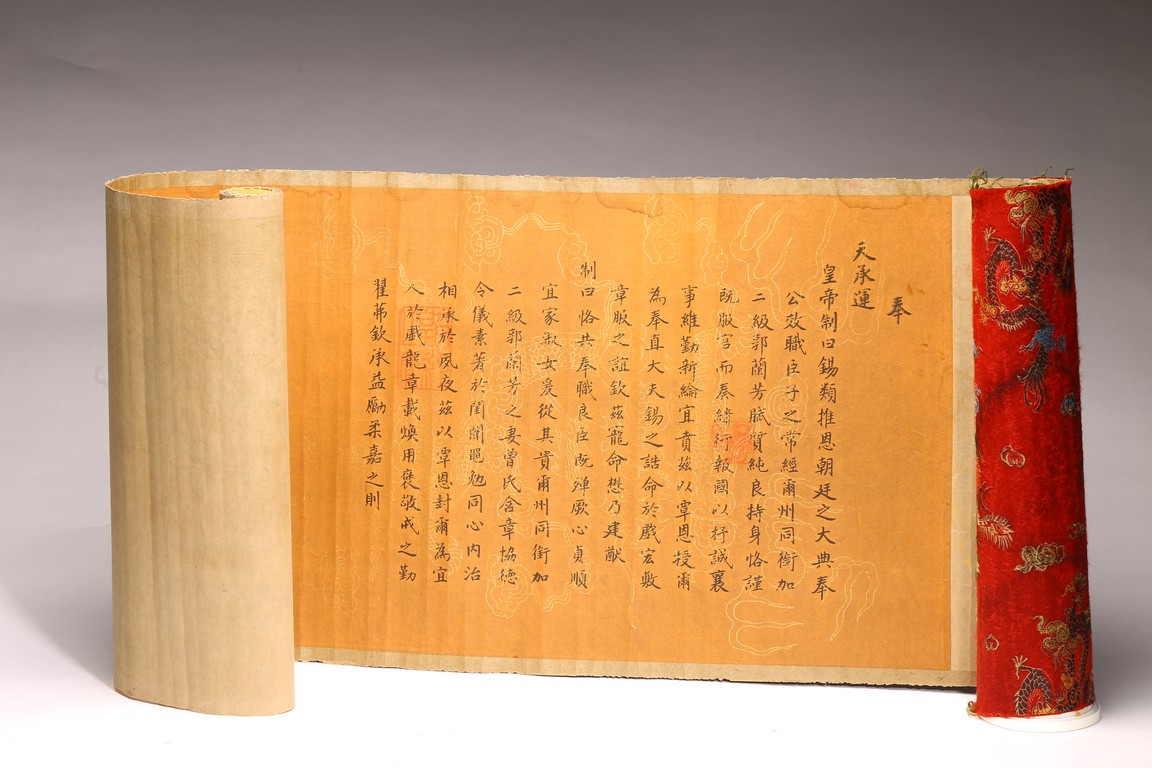 奉
天承運
皇帝制曰錫類推恩朝廷之大典奉
公效職臣子之常經爾州同銜加
二級郭蘭芳賦質純良持身恪謹
既服官而奏績行報國以抒誠襄
事維勤新綸宜賁茲以覃恩授爾
為奉直大夫錫之誥命於戲宏敷
章服之誼欽茲寵命懋乃建猷
制曰恪共奉職良臣既殫厥心貞順
宜家淑女爰從其貴爾州同銜加
二級郭蘭芳之妻曾氏含章協德
令儀素著於閨閫黽勉同心內治
相承於夙夜茲以覃恩封爾為宜
人於戲龍章載煥用褒敬戒之勤
翟茀欽承益勵柔嘉之則